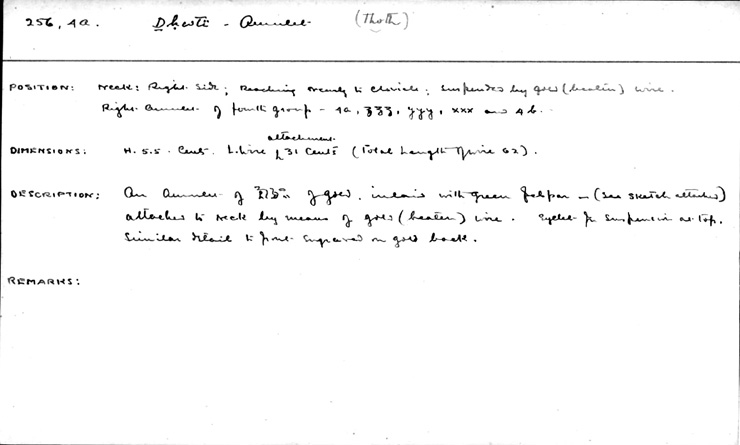 256, 4a. Dhwti - Amulet (Thoth)
POSITION: Neck: Right side; Reaching nearly to clavicle; suspended by gold (beaten) wire.
Right amulet of fourth group - 4a, zzz, yyy, xxx and 4b.
attachment
DIMENSIONS: H. 5.5 Cents. L. wire 31 Cents (Total Length of wire 62).
DESCRIPTION: An Amulet of of gold, inlaid with green felspar - (see sketch attached)
attached to neck by means of gold (beaten) wire. Eyelet for suspension at top.
Similar detail to front engraved on gold back.
REMARKS: